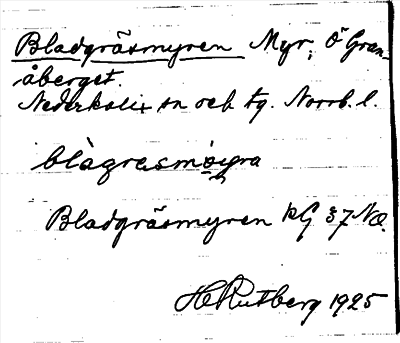 Bladgräsmyren Myr, Ö Gran-
åberget.
Nederkalix sn och tg. Norrb. l.
blàgrasmöyra
Bladgräsmyren KG 37 Nö.
H Rutberg 1925